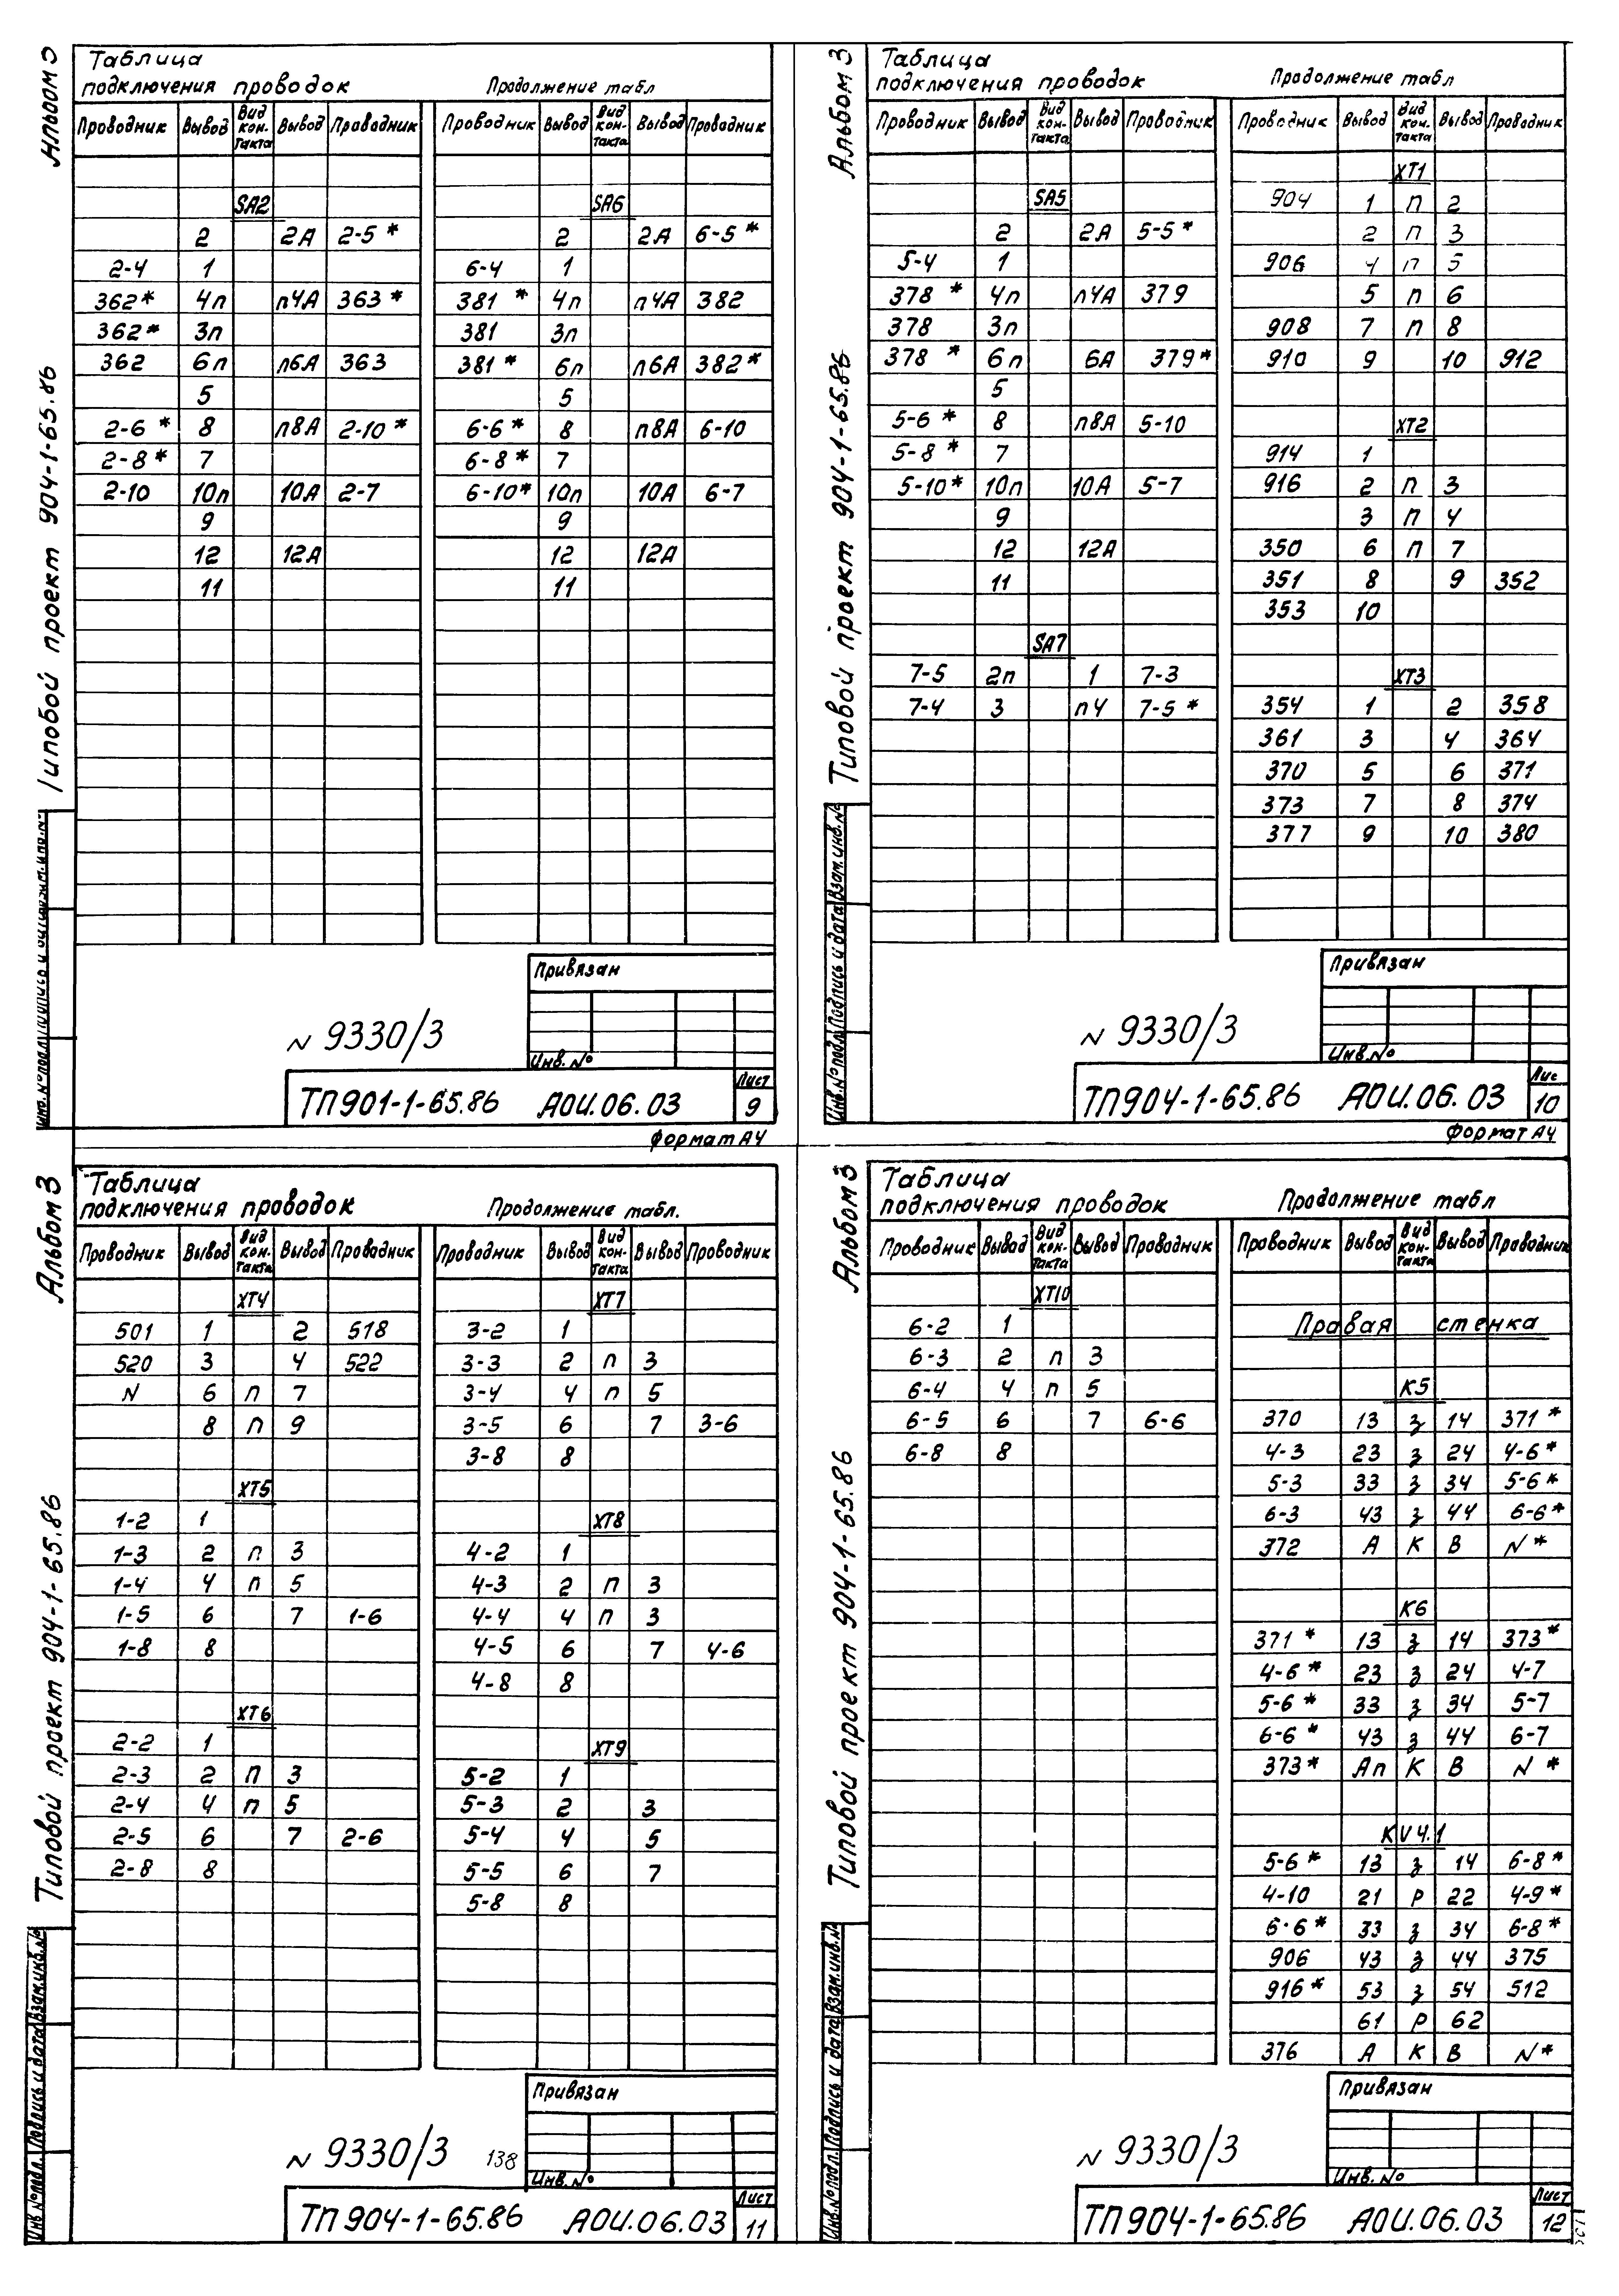 Альбом 3
Типовой проект 904-1-65.86
Таблица
подключения проводок
Проводник Вывод Вид кон-такта Вывод Проводник
SA2
2 2А 2-5*
2-4 1
362* 4п п4А 363*
362* 3п
362 6п п6А 363
5
2-6* 8 п8А 2-10*
2-8* 7
2-10 10п 10А 2-7
9
12 12А
11
Продолжение табл
Проводник Вывод Вид кон-такта Вывод Проводник
SA6
2 2А 6-5*
6-4 1
381* 4п п4А 382
381 3п
381* 6п п6А 382*
5
6-6* 8 п8А 6-10
6-8* 7
6-10* 10п 10А 6-7
9
12 12А
11
Привязан
Инв.№
N 9330/3
ТП901-1-65.86 АОИ.06.03
Лист
9
Формат А4
Альбом 3
Типовой проект 904-1-65.86
Взам.инв.№
Подпись и дата
Инв.№ подл.
Таблица
подключения проводок
Проводник Вывод Вид кон-такта Вывод Проводник
SA5
2 2А 5-5*
5-4 1
378* 4п п4А 379
378 3п
378* 6п 6А 379*
5
5-6* 8 п8А 5-10
5-8* 7
5-10* 10п 10А 5-7
9
12 12А
11
SA7
7-5 2п 1 7-3
7-4 3 п4 7-5*
Продолжение табл
Проводник Вывод Вид кон-такта Вывод Проводник
XT1
904 1 п 2
2 п 3
906 4 п 5
5 п 6
908 7 п 8
910 9 10 912
XT2
914 1
916 2 п 3
3 п 4
350 6 п 7
351 8 9 352
353 10
XT3
354 1 2 358
361 3 4 364
370 5 6 371
373 7 8 374
377 9 10 380
Привязан
Инв.№
N 9330/3
ТП904-1-65.86 АОИ.06.03
Лис
10
Формат А4
Альбом 3
Типовой проект 904-1-65.86
Взам.инв.№
Подпись и дата
Инв.№ подл.
Таблица
подключения проводок
Проводник Вывод Вид кон-такта Вывод Проводник
XT4
501 1 2 518
520 3 4 522
N 6 п 7
8 п 9
XT5
1-2 1
1-3 2 п 3
1-4 4 п 5
1-5 6 7 1-6
1-8 8
XT6
2-2 1
2-3 2 п 3
2-4 4 п 5
2-5 6 7 2-6
2-8 8
Продолжение табл.
Проводник Вывод Вид кон-такта Вывод Проводник
XT7
3-2 1
3-3 2 п 3
3-4 4 п 5
3-5 6 7 3-6
3-8 8
XT8
4-2 1
4-3 2 п 3
4-4 4 п 3
4-5 6 7 4-6
4-8 8
XT9
5-2 1
5-3 2 3
5-4 4 5
5-5 6 7
5-8 8
Привязан
Инв.№
N 9330/3 138
ТП904-1-65.86 АОИ.06.03
Лист
11
Альбом 3
Типовой проект 904-1-65.86
Взам.инв.№
Подпись и дата
Инв.№ подл.
Таблица
подключения проводок
Проводник Вывод Вид кон-такта Вывод Проводник
XT10
6-2 1
6-3 2 п 3
6-4 4 п 5
6-5 6 7 6-6
6-8 8
Продолжение табл
Проводник Вывод Вид кон-такта Вывод Проводник
Правая стенка
K5
370 13 з 14 371*
4-3 23 з 24 4-6*
5-3 33 з 34 5-6*
6-3 43 з 44 6-6*
372 А К В N*
K6
371* 13 з 14 373*
4-6* 23 з 24 4-7
5-6* 33 з 34 5-7
6-6* 43 з 44 6-7
373* Ап К В N*
KV4.1
5-6* 13 з 14 6-8*
4-10 21 Р 22 4-9*
6-6* 33 з 34 6-8*
906 43 з 44 375
916* 53 з 54 512
61 Р 62
376 А К В N*
Привязан
Инв.№
N 9330/3
ТП904-1-65.86 АОИ.06.03
Лист
12